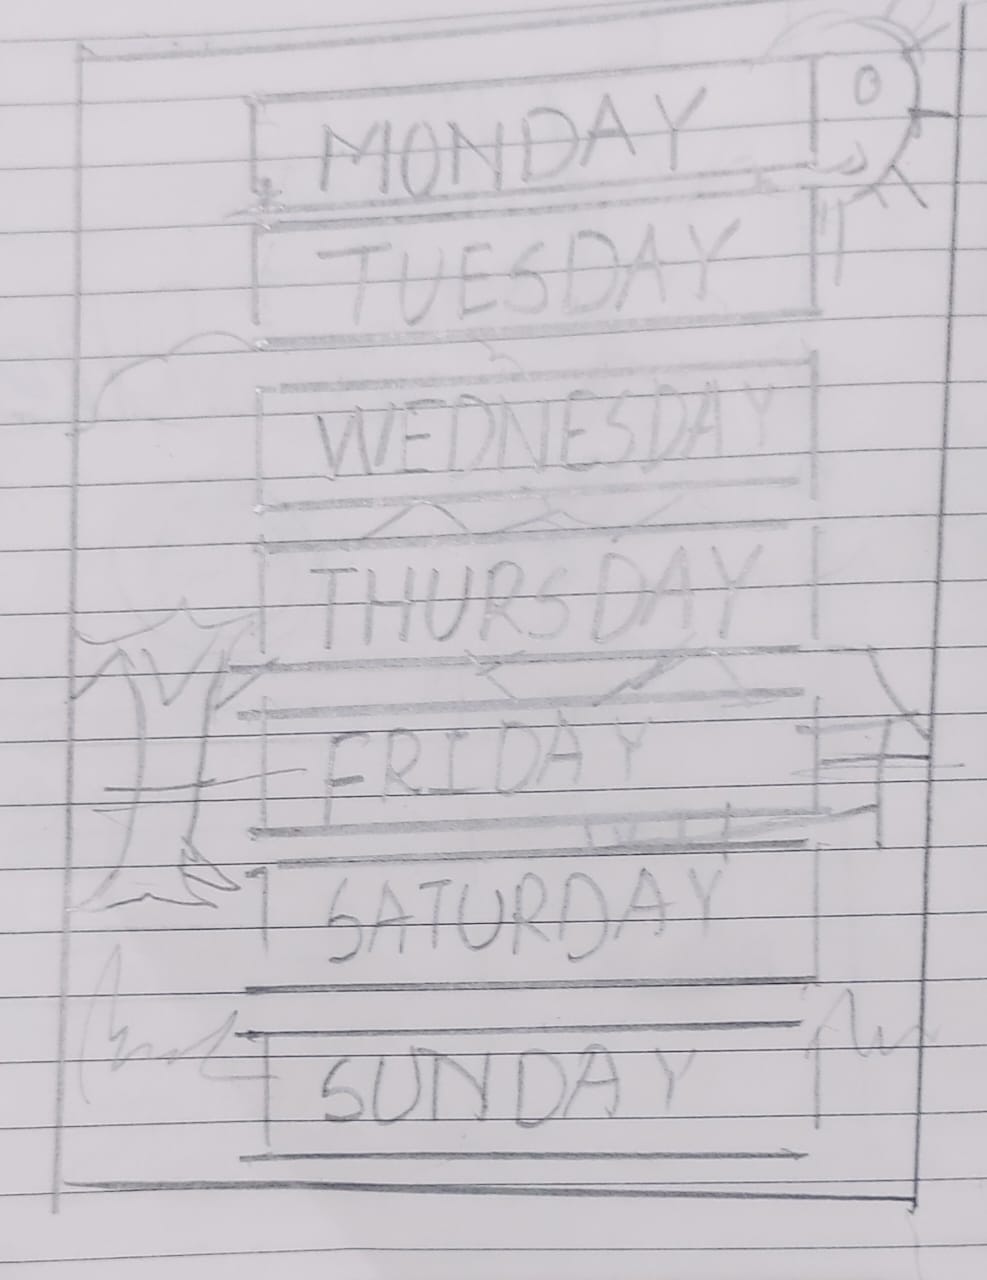 MONDAY
TUESDAY
WEDNESDAY
THURSDAY
FRIDAY
SATURDAY
SUNDAY